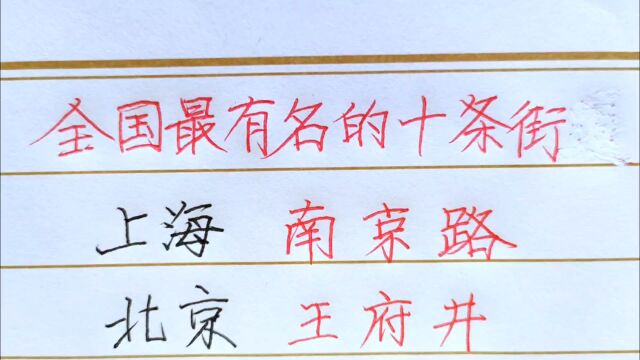 全国最有名的十条街
上海 南京路
北京 王府井